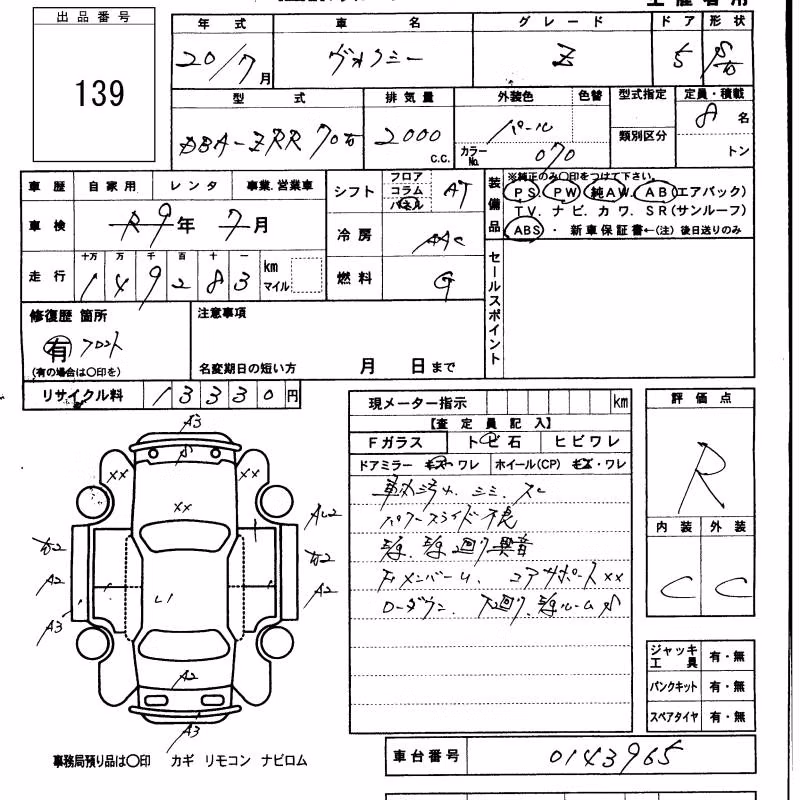 出品番号
139
年式 車名 グレード ドア 形状
20/7月 ヴォクシー Z 5
型式 排気量 外装色 色替 型式指定 定員・積載
DBA-ZRR70 2000 c.c. パール カラーNo. 070 類別区分 8名 トン
車歴 自家用 レンタ 事業.営業車
車検 R9年 7月
走行 十万 万 千 百 十 一 km マイル
1 4 9 2 8 3
シフト フロア コラム パネル AT
冷房 AAC
燃料 G
装備品
※純正のみ〇印をつけて下さい。
PS. PW. 純AW. AB(エアバック)
TV. ナビ. カワ. SR(サンルーフ)
ABS ・ 新車保証書←(注) 後日送りのみ
セールスポイント
修復歴 箇所
有 フロント
(有の場合は〇印を)
注意事項
名変期日の短い方 月 日まで
リサイクル料 13330円
現メーター指示 km
【査定員記入】
Fガラス トビ石 ヒビワレ
ドアミラー キズ・ワレ ホイール(CP) キズ・ワレ
パワースライド不良
異音
コアサポートxx
ローダウン.
評価点
R
内装 外装
C C
ジャッキ 工具 有・無
パンクキット 有・無
スペアタイヤ 有・無
A3
xx xx
xx
A2
A2
A3
L1
A2
A3
事務局預り品は〇印 カギ リモコン ナビロム
車台番号 0143965